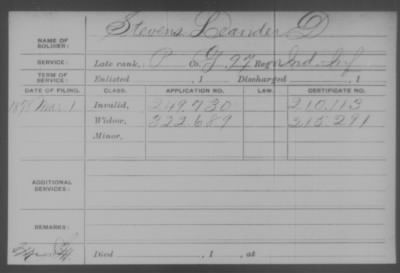 NAME OF SOLDIER: Stevens Leander D
SERVICE: Late rank, P Co. G, 27 Reg't Ind. Inf
TERM OF SERVICE: Enlisted , 1 Discharged , 1
DATE OF FILING. CLASS. APPLICATION NO. LAW. CERTIFICATE NO.
Mar. 1 Invalid, 249.730 210.113
Widow, 322.689 215.291
Minor,
ADDITIONAL SERVICES:
REMARKS:
Died , 1 , at